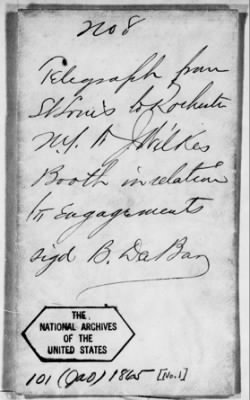 No 8
Telegraph from
St Louis to Rochester
N.Y. to J Wilkes
Booth in relation
to Engagements
sigd B. DaBar
THE
NATIONAL ARCHIVES
OF THE
UNITED STATES
101 (JAO) 1865 [No.1]